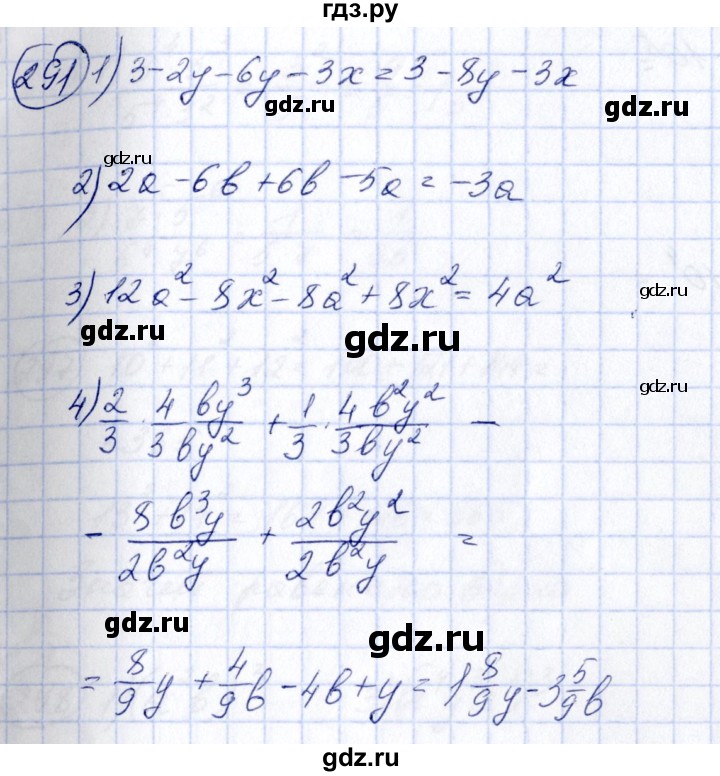 гдз.ру
291 1) 3-2y-6y-3x=3-8y-3x
gdz.ru
gdz.ru
gdz.ru
2) 2a-6b+6b-5a=-3a
gdz.ru
3) 12a²-8x²-8a²+8x²=4a²
gdz.ru
gdz.ru
gdz.ru
gdz.ru
4) 2/3 · 4by³/3by² + 1/3 · 4b²y²/3by² -
- 8b³y/2b²y + 2b²y²/2b²y =
gdz.ru
gdz.ru
= 8/9y + 4/9b - 4b + y = 1 8/9y - 3 5/9b
gdz.ru
gdz.ru